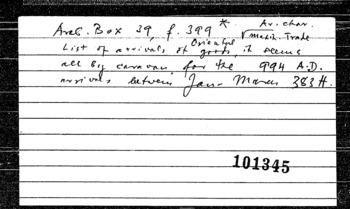 Arab. Box 39, f. 399 * Ar. char.
✓ marit. Trade
List of arrivals of Oriental goods, it seems
all by caravan for the 994 A.D.
arrivals between Jan - March 383 H.
101345